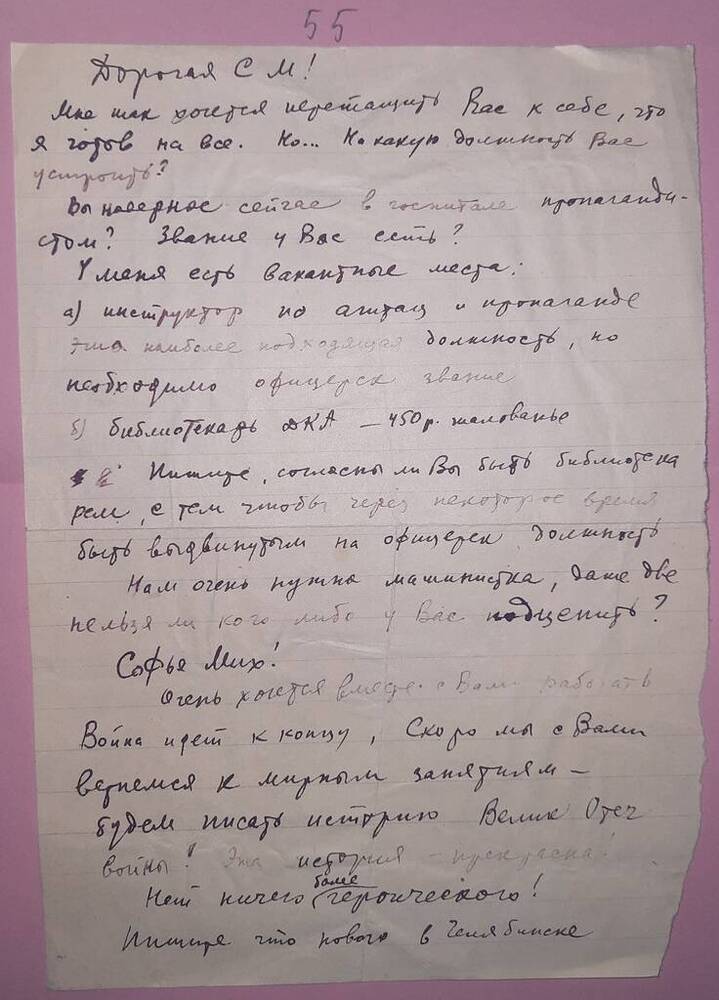 55
Дорогая С М!
Мне так хочется перетащить Вас к себе, что
я готов на все. Но... На какую должность Вас
устроить?
Вы наверное сейчас в госпитале пропаганди-
стом? Звание у Вас есть?
У меня есть вакантные места:
а) инструктор по агитац и пропаганде
Эта наиболее подходящая должность, но
необходимо офицерск звание
б) библиотекарь ДКА – 450 р. жалованье
Пишите, согласны ли Вы быть библиотека
рем, с тем чтобы через некоторое время
быть выдвинутым на офицерск должность
Нам очень нужна машинистка, даже две
нельзя ли кого либо у Вас подцепить?
Софья Мих!
Очень хочется вместе с Вами работать
Война идет к концу, Скоро мы с Вами
вернемся к мирным занятиям –
будем писать историю Велик Отеч
войны! Эта история – прекрасна!
Нет ничего более героического!
Пишите что нового в Челябинске